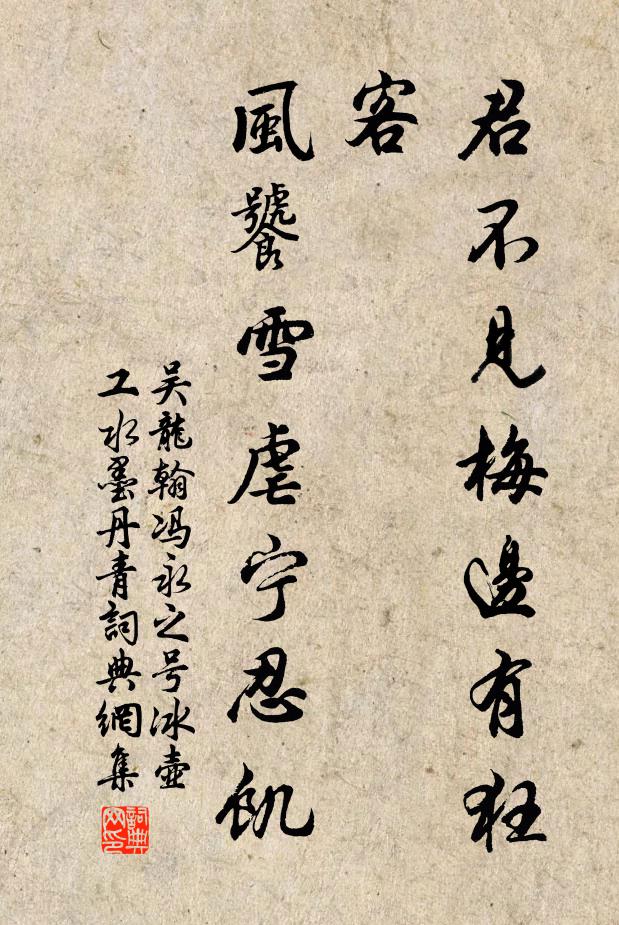 君不見梅邊有狂
客
風饕雪虐宁忍飢
吴龍翰馮永之号冰壺
工水墨丹青詞典網集
詞典
网印